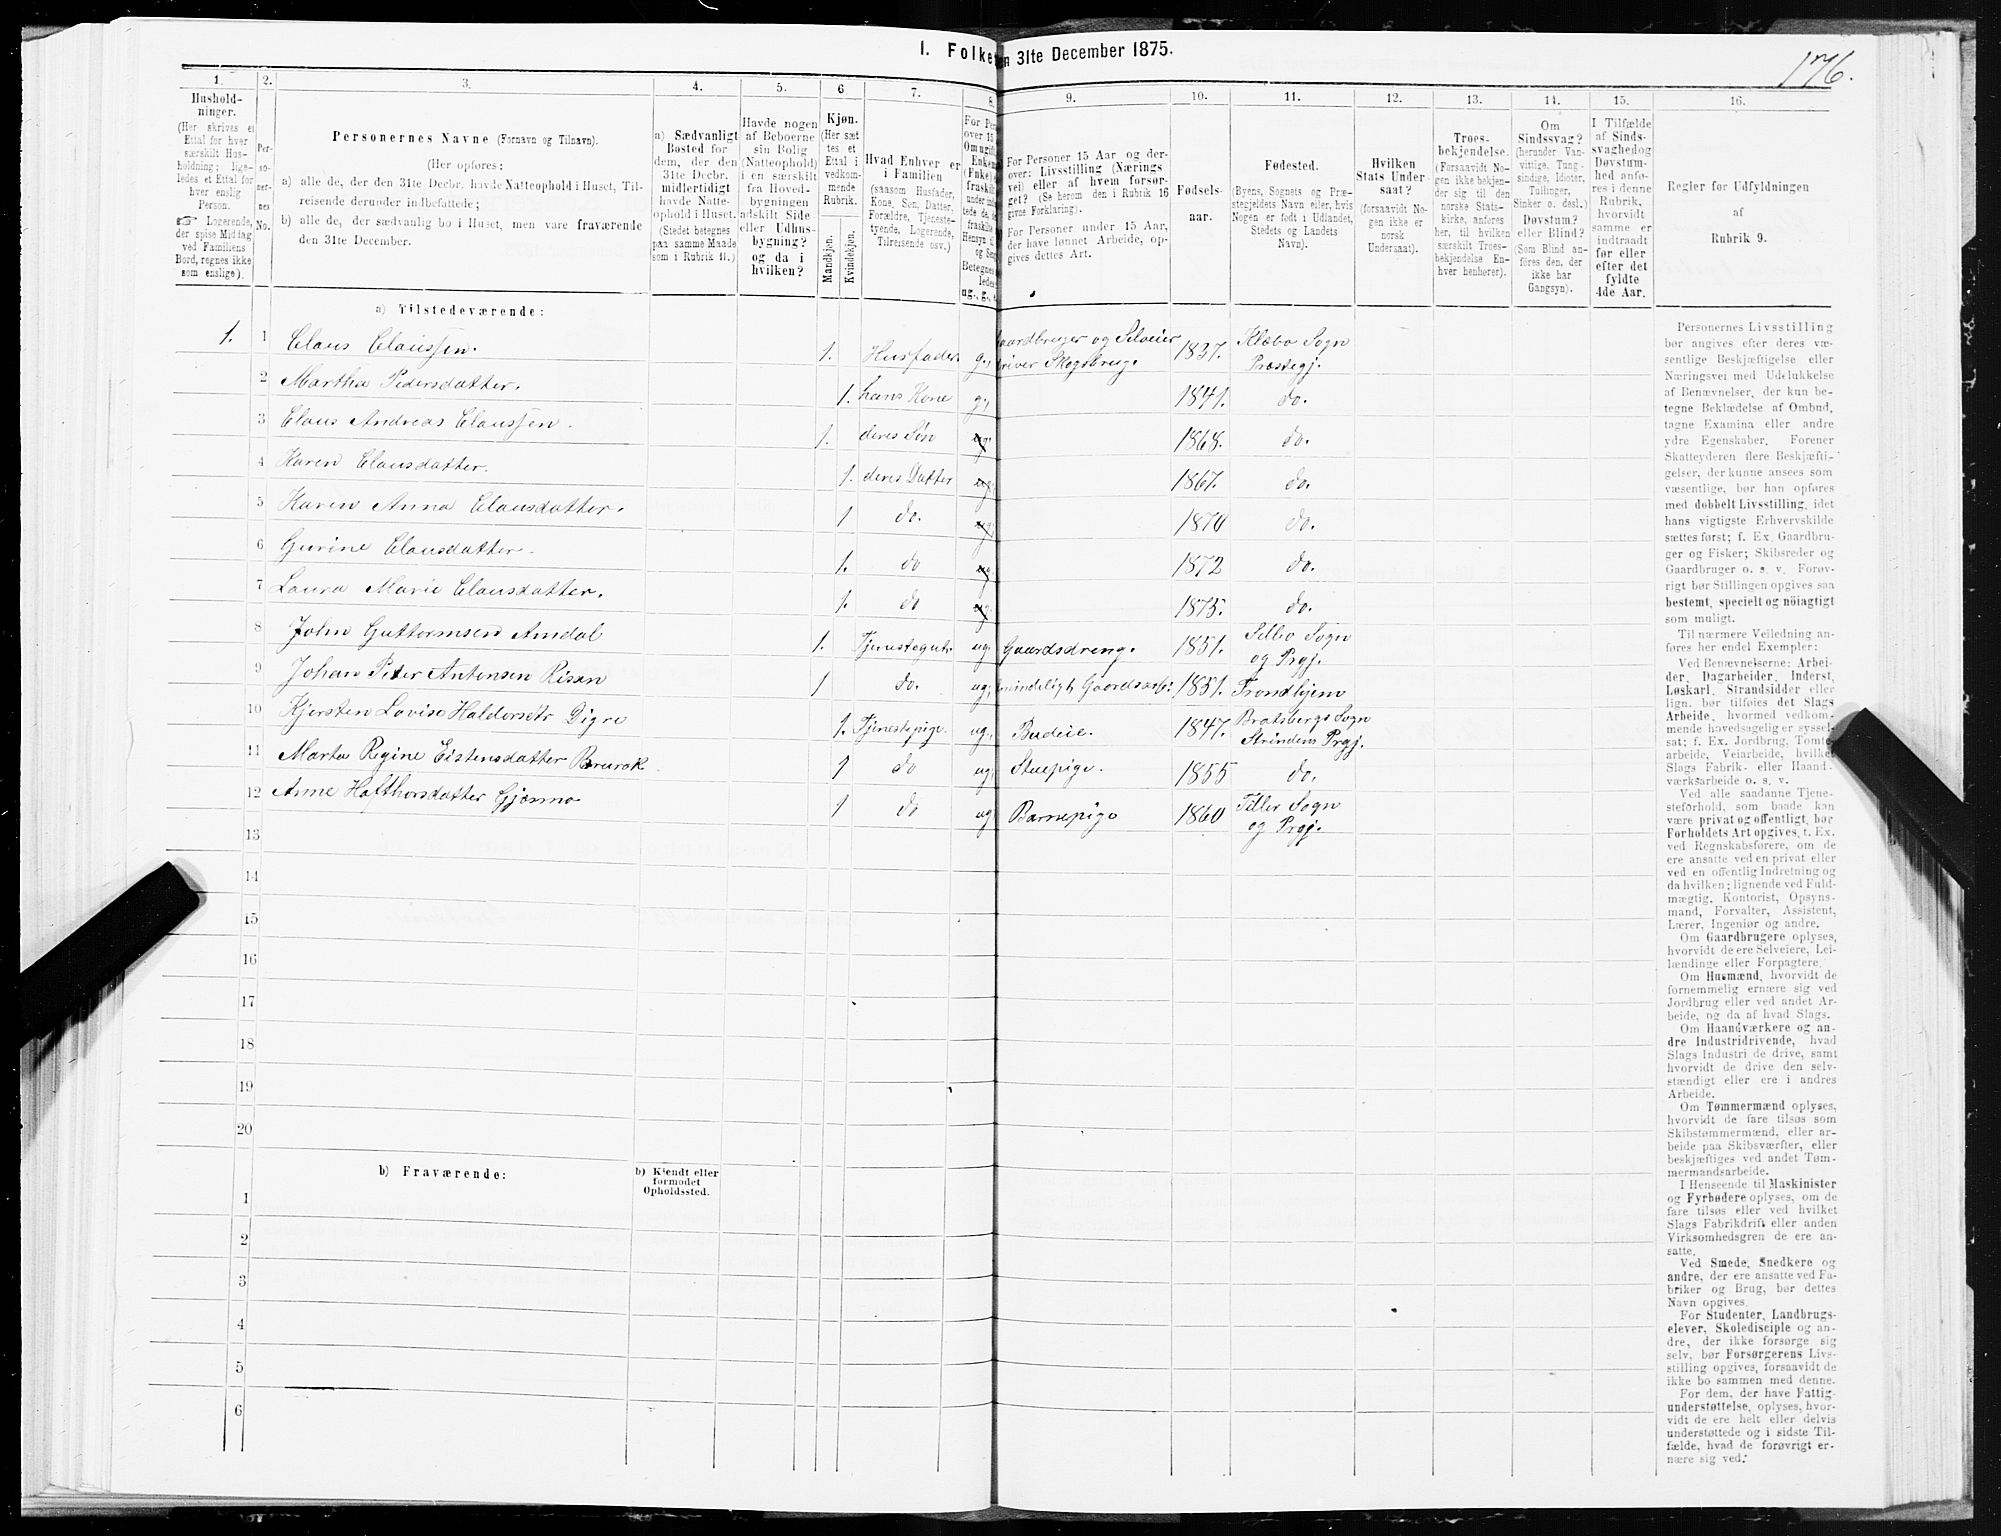 I. Folke
en 31te December 1875.
176.
1.
2.
3.
4.
5.
6
7.
8.
9.
10.
11.
12.
13.
14.
15.
16.
Hushold-
ninger.
(Her skrives et
Ettal for hver
særskilt Hus-
holdning; lige-
ledes et Ettal for
hver enslig
Person.
☞ Logerende,
der spise Middag
ved Familiens
Bord, regnes ikke
som enslige).
Per-
so-
ner-
nes
No.
Personernes Navne (Fornavn og Tilnavn).
(Her opføres:
a) alle de, der den 31te Decbr. havde Natteophold i Huset, Til-
reisende derunder indbefattede;
b) alle de, der sædvanlig bo i Huset, men vare fraværende
den 31te December.
a) Sædvanligt
Bosted for
dem, der den
31te Decbr.
midlertidigt
havde Natte-
ophold i Huset.
(Stedet betegnes
paa samme Maade
som i Rubrik 11.)
Havde nogen
af Beboerne
sin Bolig
(Natteophold)
i en særskilt
fra Hoved-
bygningen
adskilt Side
eller Udhus-
bygning?
og da i
hvilken?
Kjøn.
(Her sæt-
tes et
Ettal i
vedkom-
mende
Rubrik.
Mandkjøn.
Kvindekjøn.
Hvad Enhver er
i Familien
(saasom Husfader,
Kone, Søn, Datter,
Forældre, Tjeneste-
tyende, Logerende,
Tilreisende osv.)
For Pers
over 15
Om ugift
Enkem
(Enke),
fraskilt
ug., g., e
For Personer 15 Aar og der-
over: Livsstilling (Nærings-
vei) eller af hvem forsør-
get? (Se herom den i Rubrik 16
givne Forklaring).
For Personer under 15 Aar,
der have lønnet Arbeide, op-
gives dettes Art.
Fødsels-
aar.
Fødested.
(Byens, Sognets og Præ-
stegjeldets Navn eller, hvis
Nogen er født i Udlandet,
Stedets og Landets
Navn).
Hvilken
Stats Under-
saat?
(forsaavidt No-
gen ikke er
norsk
Undersaat).
Troes-
bekjendelse.
(Forsaavidt No-
gen ikke bekjen-
der sig til den
norske Stats-
kirke, anføres
her, til hvilken
særskilt Troes-
bekjendelse En-
hver henhører).
Om
Sindssvag?
(herunder Van-
vittige, Tung-
sindige, Idioter,
Tullinger,
Sinker o. desl.)
Døvstum?
eller Blind?
(Som Blind an-
føres den, der
ikke har
Gangsyn).
I Tilfælde
af Sinds-
svaghedog
Døvstum-
hed anfø-
res i denne
Rubrik,
hvorvidt
samme er
indtraadt
før eller
efter det
fyldte
4de Aar.
Regler for Udfyldningen
af
Rubrik 9.
a) Tilstedeværende:
1. 1 Claus Claussen. 1. Husfader g., Gaardbruger og Selveier 1837. Klæbo Sogn
driver Skogsbrug. Præstegj.
2 Martha Pedersdatter. 1. hans Kone g., 1841. do.
3 Claus Andreas Claussen. 1. deres Søn ug. 1868. do.
4 Karen Clausdatter. 1. deres Datter ug. 1867. do.
5 Karen Anna Clausdatter. 1 do. ug. 1870 do.
6 Gurine Clausdatter. 1. do ug 1872 do.
7 Laura Marie Clausdatter. 1. do ug. 1875. do.
8 John Guttormsen Amdal 1. Tjenestegut. ug. Gaardsdreng. 1851. Selbo Sogn
og Prgj.
9 Johan Peter Antonsen Risan 1 do. ug. Gaardsarb: 1851. Trondhjem
10 Kjersten Lovise Haldorsdtr Digre 1. Tjenestepige. ug. Budeie. 1847. Bratsbergs Sogn
Strindens Prgj.
11 Marta Regine Eistensdatter Brurok 1 do ug. Stuepige. 1855 do.
12 Anne Hafthorsdatter Gjønno 1 do ug Barnepige 1860 Tiller Sogn
og Prgj.
13
14
15
16
17
18
19
20
b) Fraværende:
b) Kjendt eller
formodet
Opholdssted.
1
2
3
4
5
6
Personernes Livsstilling
bør angives efter deres væ-
sentlige Beskjæftigelse eller
Næringsvei med Udelukkelse
af Benævnelser, der kun be-
tegne Beklædelse af Ombud,
tagne Examina eller andre
ydre Egenskaber. Forener
Skatteyderen flere Beskjæfti-
gelser, der kunne ansees som
væsentlige, bør han opføres
med dobbelt Livsstilling, idet
hans vigtigste Erhvervskilde
sættes først; f. Ex. Gaardbru-
ger og Fisker; Skibsreder og
Gaardbruger o. s. v. Forøv-
rigt bør Stillingen opgives saa
bestemt, specielt og nöiagtigt
som muligt.
Til nærmere Veiledning an-
føres her endel Exempler:
Ved Benævnelserne: Arbei-
der, Dagarbeider, Inderst,
Løskarl, Strandsidder eller
lign. bør tilføies det Slags
Arbeide, hvormed vedkom-
mende hovedsagelig er syssel-
sat; f. Ex. Jordbrug, Tomte-
arbeide, Veiarbeide, hvilket
Slags Fabrik- eller Haand-
værksarbeide o. s. v.
Ved alle saadanne Tjene-
steforhold, som baade kan
være privat og offentligt, bør
Forholdets Art opgives, t. Ex.
ved Regnskabsførere, om de
ere ansatte ved en privat eller
ved en offentlig Indretning og
da hvilken; lignende ved Fuld-
mægtig, Kontorist, Opsyns-
mand, Forvalter, Assistent,
Lærer, Ingeniør og andre.
Om Gaardbrugere oplyses,
hvorvidt de ere Selveiere, Lei-
lændinge eller Forpagtere.
Om Husmænd, hvorvidt de
fornemmelig ernære sig ved
Jordbrug eller ved andet Ar-
beide, og da af hvad Slags.
Om Haandværkere og an-
dre Industridrivende, hvad
Slags Industri de drive, samt
hvorvidt de drive den selv-
stændigt eller ere i andres
Arbeide.
Om Tømmermænd oplyses,
hvorvidt de fare tilsøs som
Skibstømmermænd, eller ar-
beide paa Skibsværfter, eller
beskjæftiges ved andet Tøm-
mermandsarbeide.
I Henseende til Maskinister
og Fyrbødere oplyses, om de
fare tilsøs eller ved hvilket
Slags Fabrikdrift eller anden
Virksomhedsgren de ere an-
satte.
Ved Smede, Snedkere og
andre, der ere ansatte ved Fa-
briker og Brug, bør dettes
Navn opgives.
For Studenter, Landbrugs-
elever, Skoledisciple og an-
dre, der ikke forsørge sig
selv, bør Forsørgerens Livs-
stilling opgives, forsaavidt de
ikke bo sammen med denne.
For dem, der have Fattig-
understøttelse, oplyses, hvor-
vidt de ere helt eller delvis
understøttede og i sidste Til-
fælde, hvad de forøvrigt er-
nære sig ved.